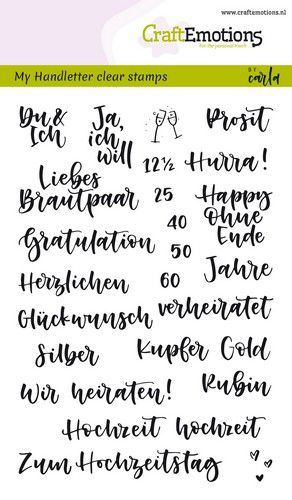 www.craftemotions.nl
CraftEmotions
for the personal touch
My Handletter clear stamps
BY carla
Du & Ich
Ja, ich will
Prosit
12½ Hurra!
Liebes Brautpaar
25
Happy Ohne Ende
40
Gratulation
50
Jahre
Herzlichen
60
Glückwunsch
verheiratet
Silber
Kupfer
Gold
Wir heiraten!
Rubin
Hochzeit
hochzeit
Zum Hochzeitstag